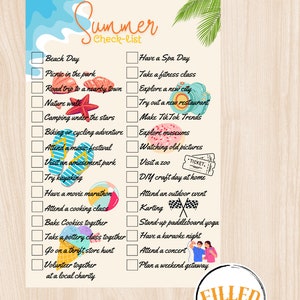 Summer
Check-list
Beach Day
Picnic in the park
Road trip to a nearby town
Nature walk
Camping under the stars
Biking or cycling adventure
Attend a music festival
Visit an amusement park
Try kayaking
Have a movies marathon
Attend a cooking class
Bake Cookies together
Take a pottery class together
Go on a thrift store hunt
Volunteer together
at a local charity
Have a Spa Day
Take a fitness class
Explore a new city
Try out a new restaurant
Make TikTok Trends
Explore museums
Watching old pictures
Visit a zoo
TICKET
DIY craft day at home
Attend an outdoor event
Karting
Stand-up paddleboard yoga
Have a karaoke night
Attend a concert
Plan a weekend getaway
FILLED